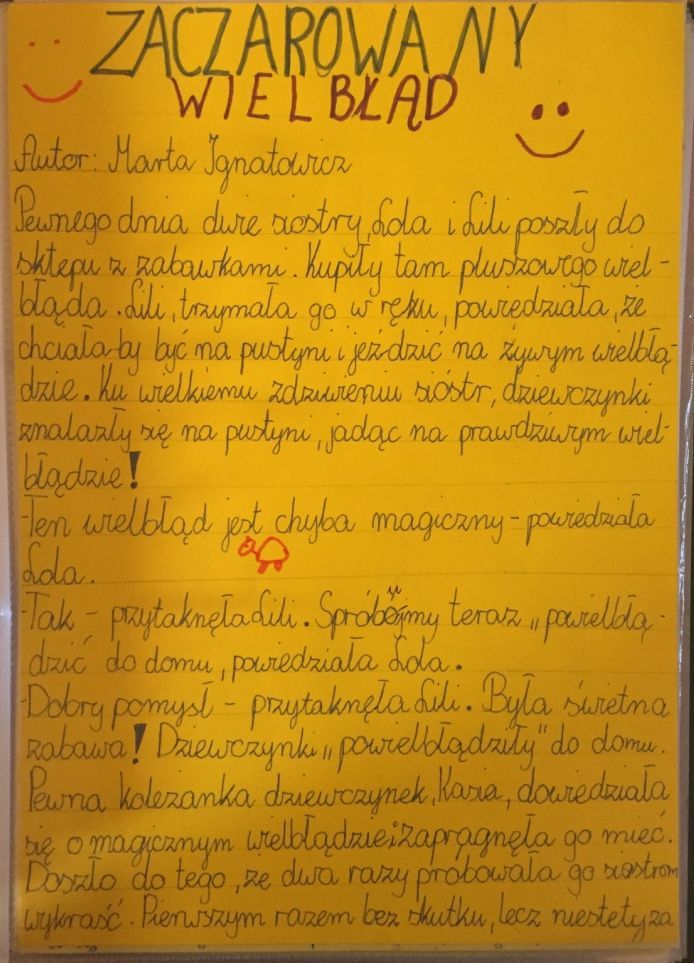 ZACZAROWANY
WIELBŁĄD
Autor: Marta Ignatowicz
Pewnego dnia dwie siostry, Lola i Lili poszły do
sklepu z zabawkami. Kupiły tam pluszowego wiel-
błąda. Lili, trzymała go w ręku, powiedziała, że
chciała-by być na pustyni i jeź-dzić na żywym wielbłą-
dzie. Ku wielkiemu zdziwieniu sióstr, dziewczynki
znalazły się na pustyni, jadąc na prawdziwym wiel-
błądzie!
-Ten wielbłąd jest chyba magiczny - powiedziała
Lola.
-Tak - przytaknęła Lili. Spróbujmy teraz „powielbłą-
dzić do domu, powiedziała Lola.
-Dobry pomysł - przytaknęła Lili. Była świetna
zabawa! Dziewczynki „powielbłądziły" do domu.
Pewna koleżanka dziewczynek, Kasia, dowiedziała
się o magicznym wielbłądzie i zapragnęła go mieć.
Doszło do tego, że dwa razy próbowała go siostrom
wykraść. Pierwszym razem bez skutku, lecz niestety za